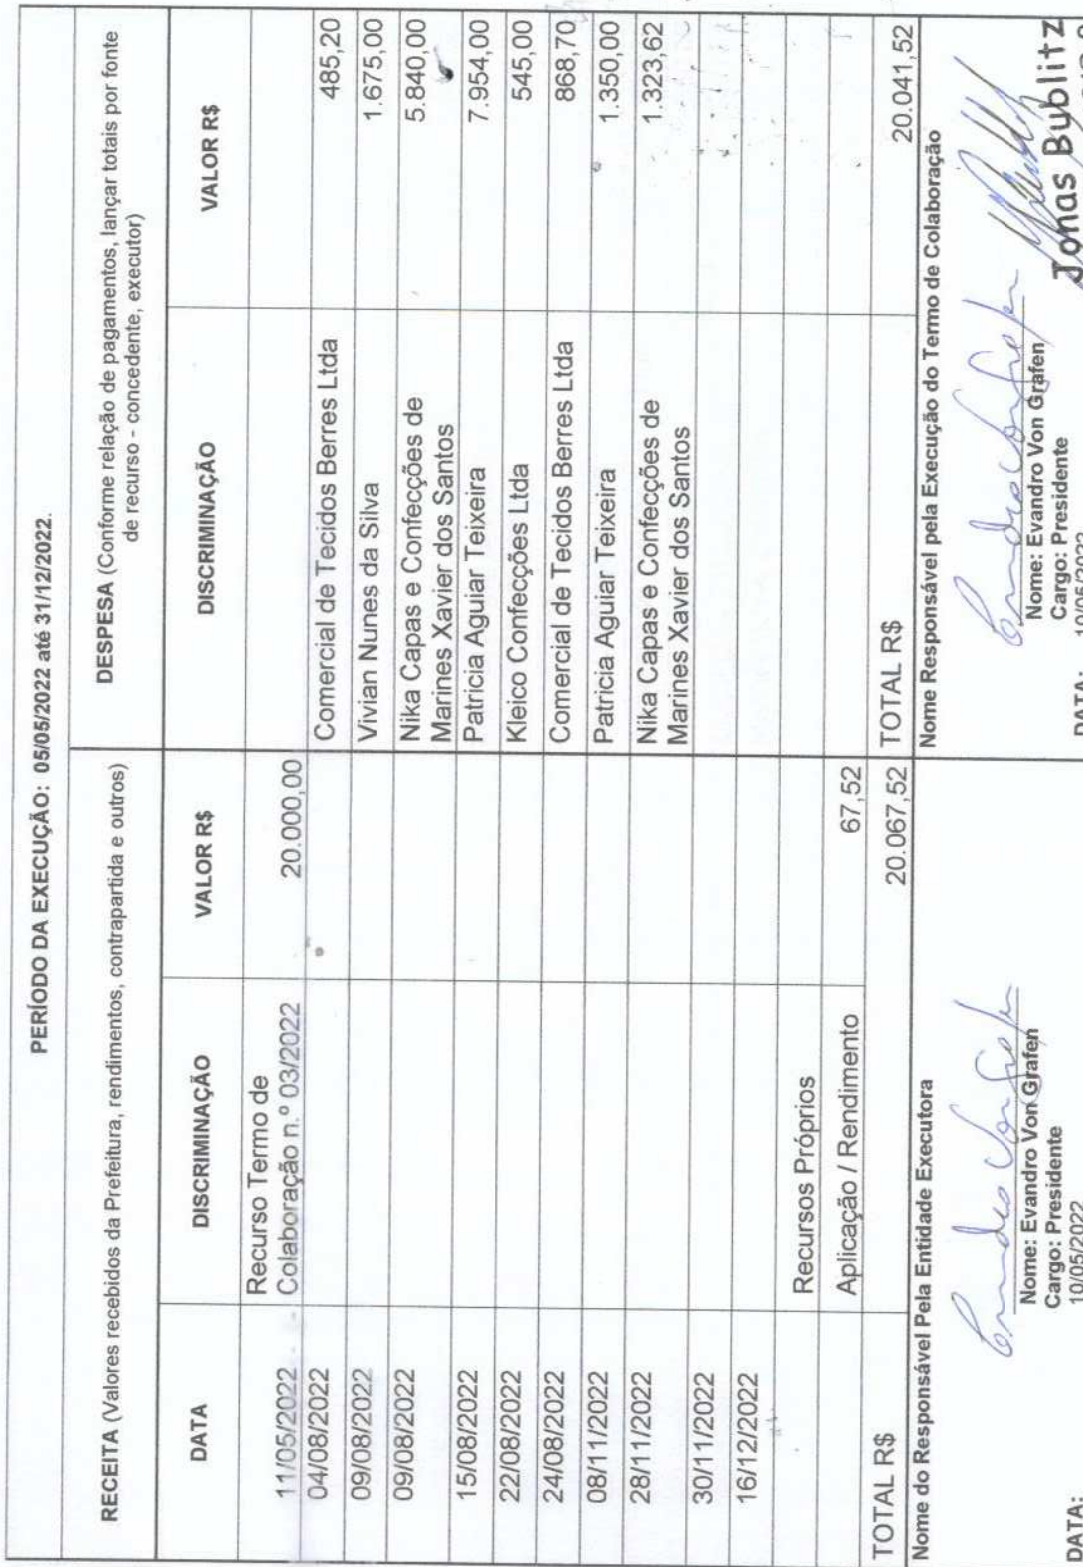 PERÍODO DA EXECUÇÃO: 05/05/2022 até 31/12/2022.
RECEITA (Valores recebidos da Prefeitura, rendimentos, contrapartida e outros)
DESPESA (Conforme relação de pagamentos, lançar totais por fonte
de recurso - concedente, executor)
DATA DISCRIMINAÇÃO VALOR R$ DISCRIMINAÇÃO VALOR R$
Recurso Termo de
11/05/2022 Colaboração n.º 03/2022 20.000,00
04/08/2022 Comercial de Tecidos Berres Ltda 485,20
09/08/2022 Vivian Nunes da Silva 1.675,00
09/08/2022 Nika Capas e Confecções de 5.840,00
Marines Xavier dos Santos
15/08/2022 Patricia Aguiar Teixeira 7.954,00
22/08/2022 Kleico Confecções Ltda 545,00
24/08/2022 Comercial de Tecidos Berres Ltda 868,70
08/11/2022 Patricia Aguiar Teixeira 1.350,00
28/11/2022 Nika Capas e Confecções de 1.323,62
Marines Xavier dos Santos
30/11/2022
16/12/2022
Recursos Próprios
Aplicação / Rendimento 67,52
TOTAL R$ 20.067,52 TOTAL R$ 20.041,52
Nome do Responsável Pela Entidade Executora
Nome: Evandro Von Grafen
Cargo: Presidente
DATA: 10/05/2022
Nome Responsável pela Execução do Termo de Colaboração
Nome: Evandro Von Grafen
Cargo: Presidente
DATA: 10/05/2022
Jonas Bublitz